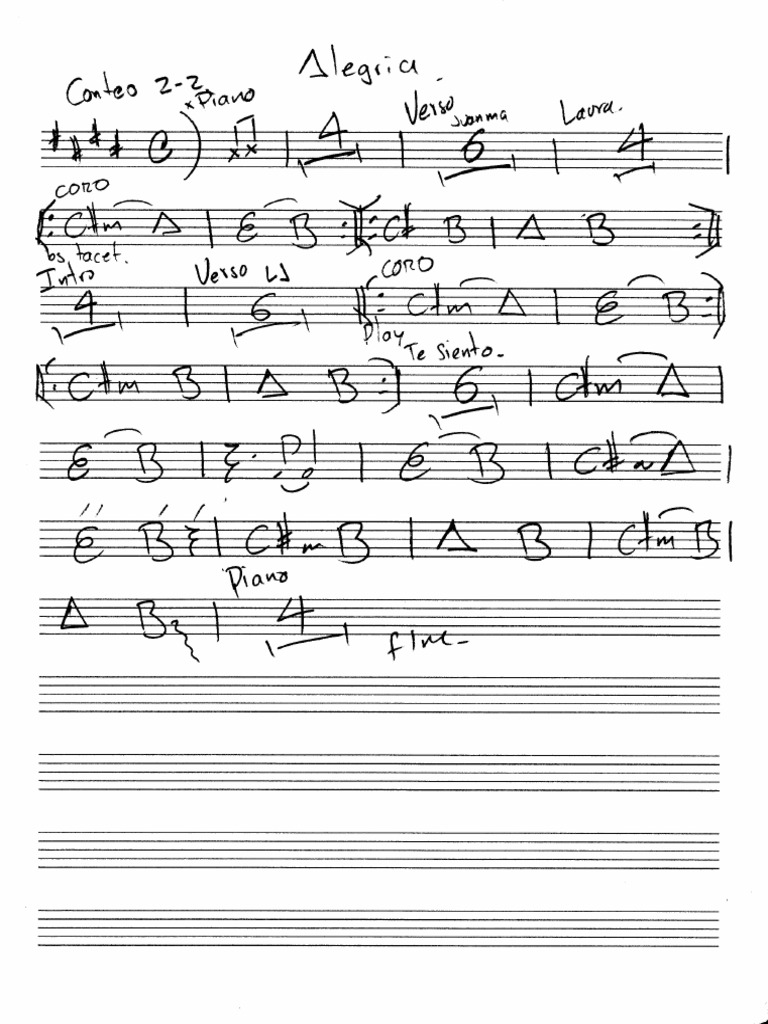 Alegria
Conteo 2-2
x Piano
Verso Juanma
Laura.
4 6 4
CORO
C#m A | E B :| |: C# B | A B :|
bs tacet.
Intro
Verso LJ
CORO
4 | 6 |: C#m A | E B :|
Play
Te Siento.
|: C#m B | A B :| 6 | C#m A |
E B | | E B | C#m A |
E B | C#m B | A B | C#m B |
Piano
A B | 4
fine